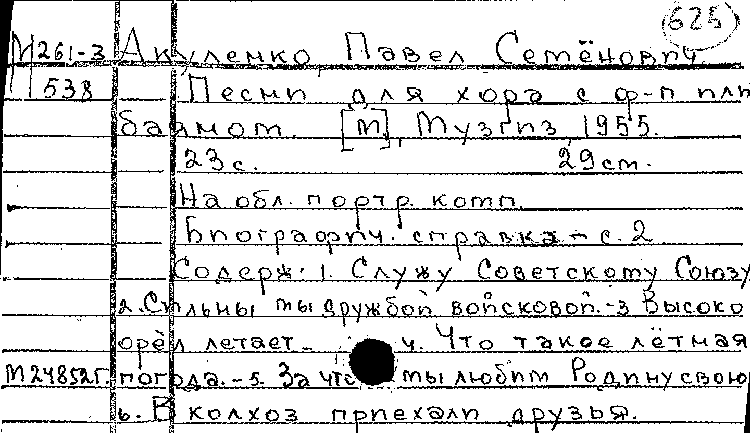 625
М261-3 Акуленко, Павел Семёнович
538 Песни для хора с ф-п или
баяном. [М], Музгиз, 1955.
23 с. 29 cm.
На обл. портр. комп.
Биографич. справка - с. 2
Содерж: 1. Служу Советскому Союзу
2. Сильны мы дружбой войсковой. - 3 Высоко
орёл летает - ч. Что такое лётная
М24852г. погода. - 5. За что мы любим Родину свою
6. В колхоз приехали друзья.